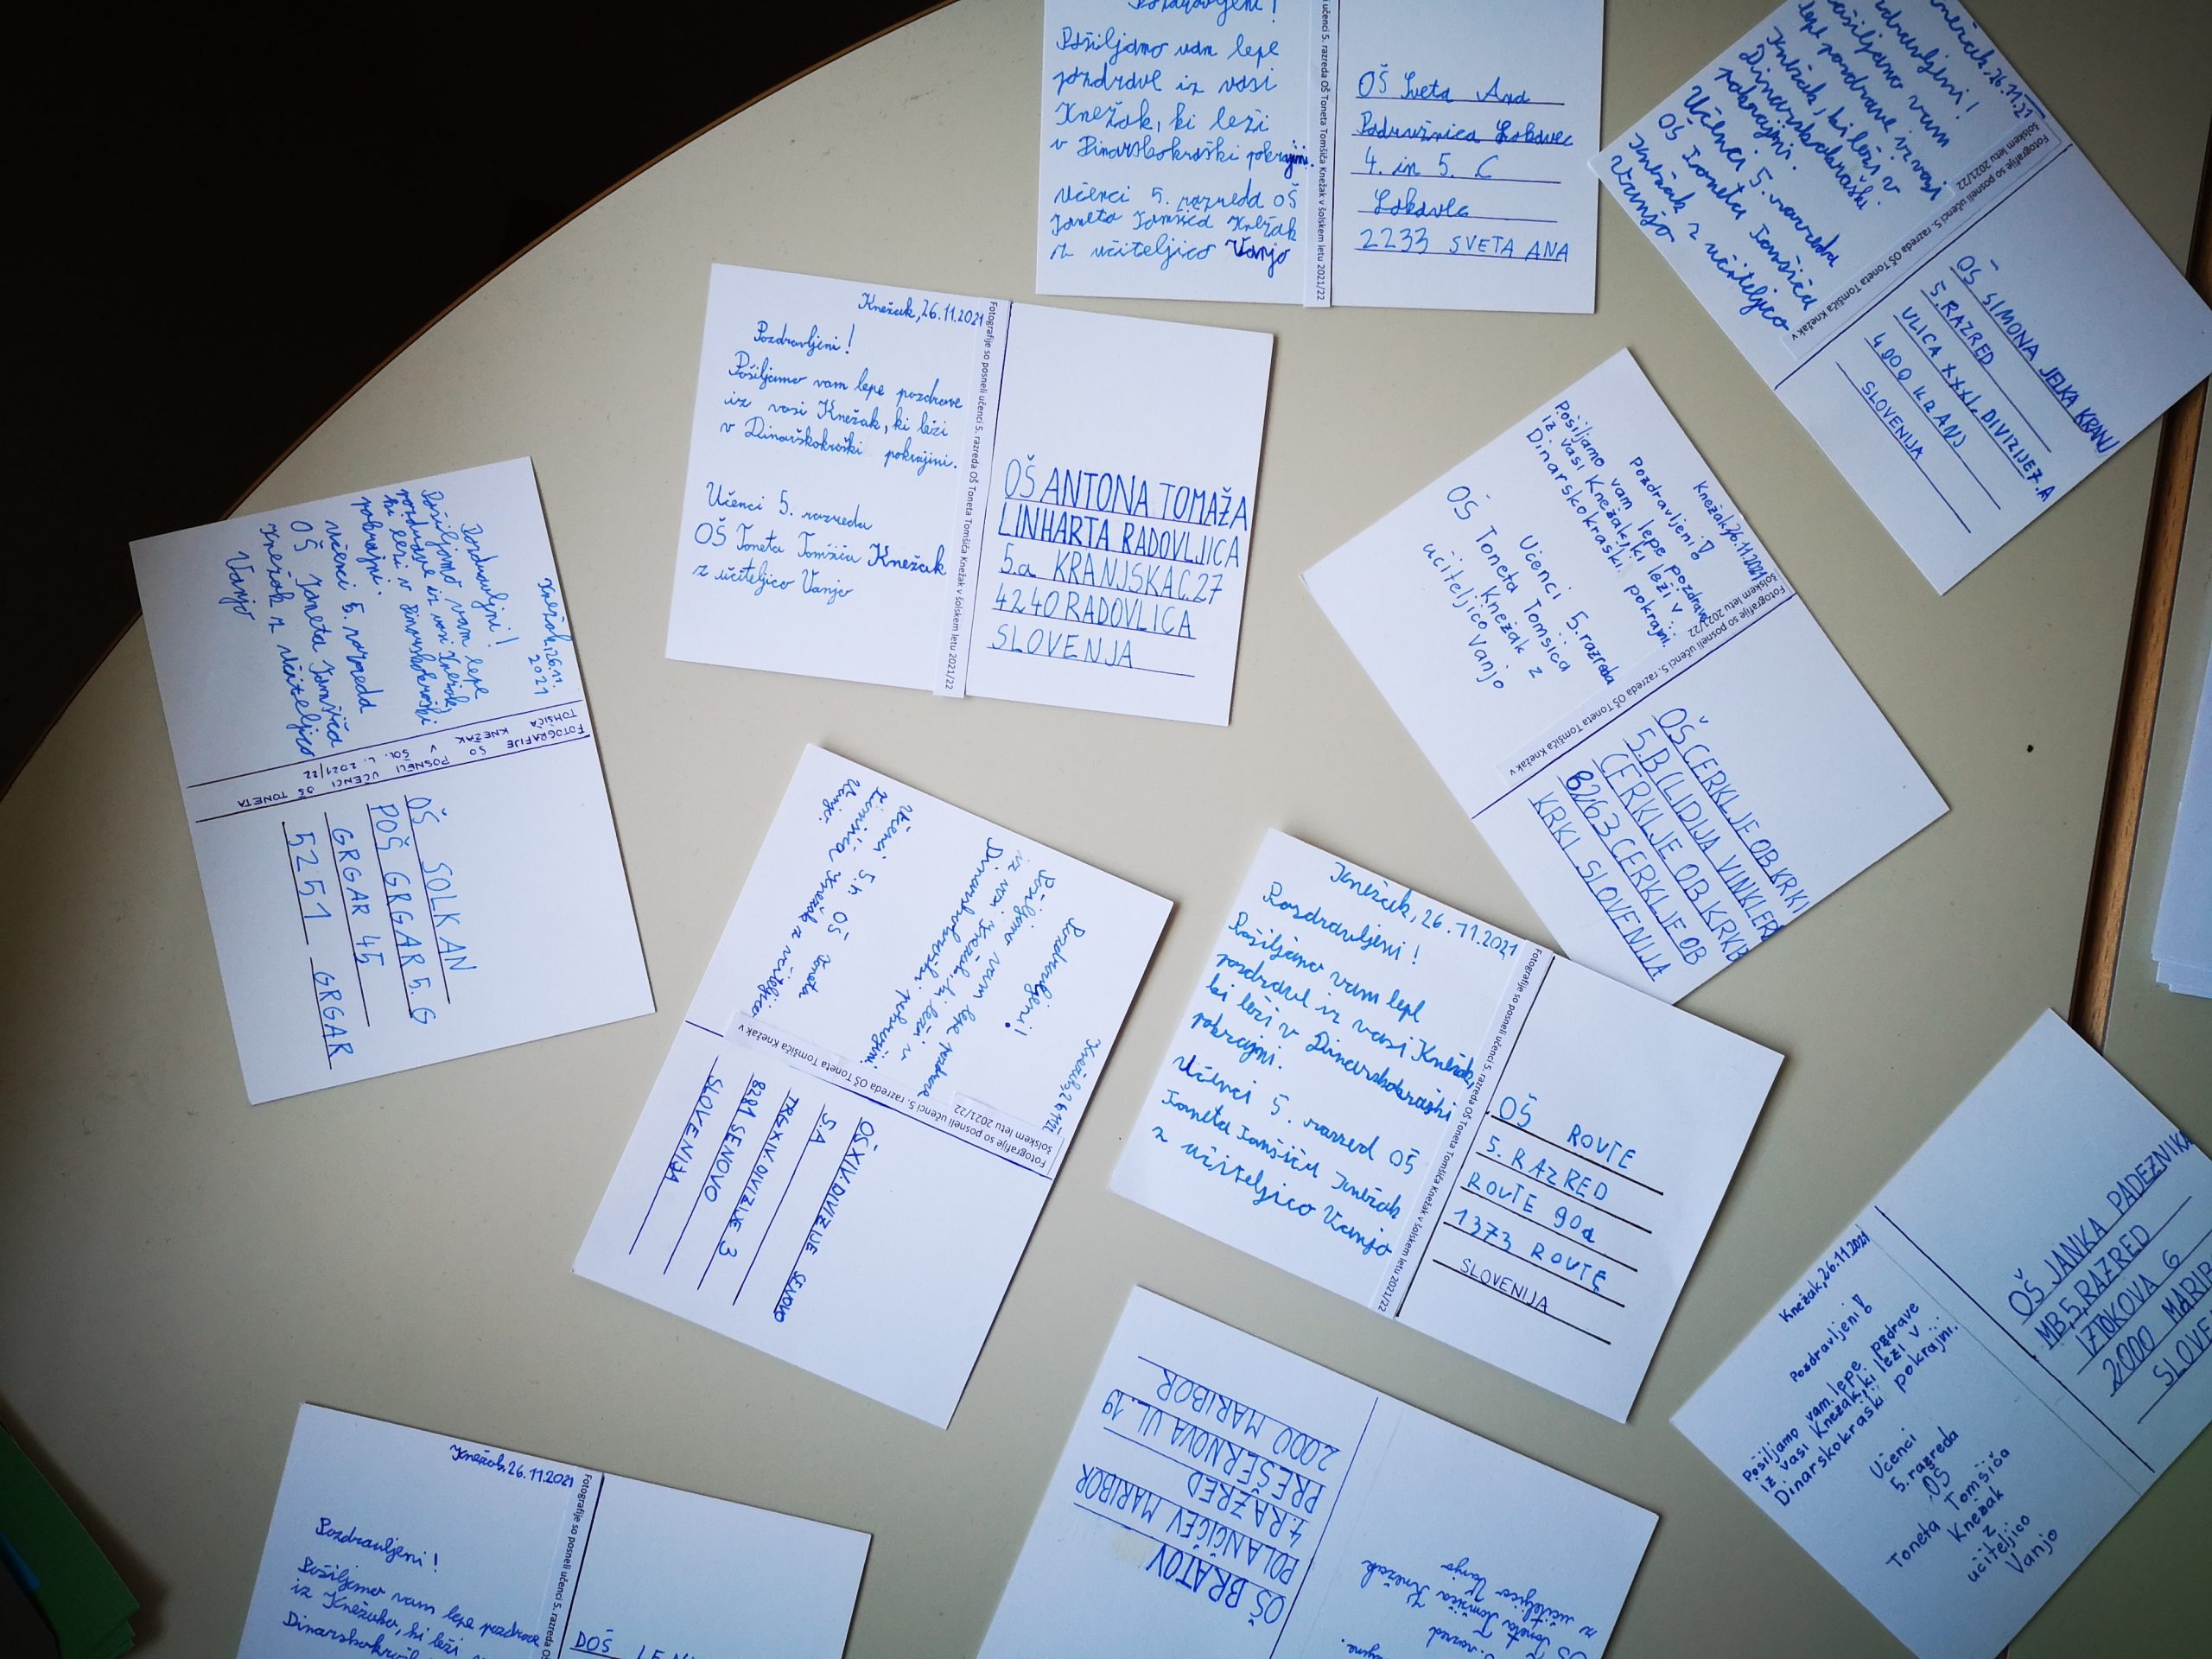 Pozdravljeni!
Pošiljamo vam lepe
pozdrave iz vasi
Knežak, ki leži
v Dinarskokraški pokrajini.
Učenci 5. razreda OŠ
Toneta Tomšiča Knežak
z učiteljico Vanjo
učenci 5. razreda OŠ Toneta Tomšiča Knežak v šolskem letu 2021/22
OŠ Sveta Ana
Podružnica Lokavec
4. in 5. C
Lokavec
2233 SVETA ANA
Knežak, 26.11.21
Pošiljamo vam
lepe pozdrave iz vasi
Knežak, ki leži v
Dinarskokraški
pokrajini.
Učenci 5. razreda
OŠ Toneta Tomšiča
Knežak z učiteljico
Vanjo
Fotografije so posneli učenci 5. razreda OŠ Toneta Tomšiča Knežak v
šolskem letu 2021/22
OŠ SIMONA JELKA KRANJ
5. RAZRED
ULICA XXXI. DIVIZIJE 7.A
4000 KRANJ
SLOVENIJA
Knežak, 26.11.2021
Pozdravljeni!
Pošiljamo vam lepe pozdrave
iz vasi Knežak, ki leži
v Dinarskokraški pokrajini.
Učenci 5. razreda
OŠ Toneta Tomšiča Knežak
z učiteljico Vanjo
Fotografije so posneli učenci 5. razreda OŠ Toneta Tomšiča Knežak v šolskem letu 2021/22
OŠ ANTONA TOMAŽA
LINHARTA RADOVLJICA
5.a KRANJSKA C.27
4240 RADOVLICA
SLOVENJA
Knežak, 26.11.2021
Pozdravljeni!
Pošiljamo vam lepe pozdrave
iz vasi Knežak, ki leži v
Dinarskokraški pokrajni.
Učenci 5. razreda
OŠ Toneta Tomšiča
Knežak z
učiteljico Vanjo
Fotografije so posneli učenci 5. razreda OŠ Toneta Tomšiča Knežak v
šolskem letu 2021/22
OŠ CERKLJE OB KRKI
5.B (LIDIJA VINKLER
CERKLJE OB KRKI
8263 CERKLJE OB
KRKI SLOVENIJA
Knežak, 26.11.
2021
Pozdravljni!
Pošiljamo vam lepe
pozdrave iz vasi Knežak,
ki leži v Dinarskokraški
pokrajni.
Učenci 5. razreda
OŠ Toneta Tomšiča
Knežak z učiteljico
Vanjo
FOTOGRAFIJE SO POSNELI UČENCI OŠ TONETA
TOMŠIČA KNEŽAK V ŠOL. L. 2021/22
OŠ SOLKAN
POŠ GRGAR 5. G
GRGAR 45
5251 GRGAR
Pozdravljeni!
Pošiljamo vam lepe pozdrave
iz vasi Knežak, ki leži v
Dinarskokraški pokrajini.
Učenci 5.r. OŠ Toneta
Tomšiča Knežak z učiteljico
Vanjo.
Fotografije so posneli učenci 5. razreda OŠ Toneta Tomšiča Knežak v
šolskem letu 2021/22
OŠ XIV. DIVIZIJE SENOVO
5.A
TRG XIV. DIVIZIJE 3
8281 SENOVO
SLOVENIJA
Knežak, 26.11.2021
Pozdravljeni!
Pošiljamo vam lepe
pozdrave iz vasi Knežak,
ki leži v Dinarskokraški
pokrajni.
Učenci 5. razred OŠ
Toneta Tomšiča Knežak
z učiteljico Vanjo
Fotografije so posneli učenci 5. razreda OŠ Toneta Tomšiča Knežak v šolskem letu 2021/22
OŠ ROVTE
5. RAZRED
ROVTE 90a
1373 ROVTE
SLOVENIJA
Knežak, 26.11.2021
Pozdravljeni!
Pošiljamo vam lepe pozdrave
iz vasi Knežak, ki leži v
Dinarskokraški pokrajini.
Učenci
5. razreda
OŠ
Toneta Tomšiča
Knežak
z
učiteljico
Vanjo
OŠ JANKA PADEŽNIKA
MB, 5, RAZRED
IZTOKOVA 6
2000
OŠ BRATOV
POLANČIČEV MARIBOR
4. RAZRED
PREŠERNOVA UL. 19
2000 MARIBOR
razred
OŠ Toneta Tomšiča Knežak
z učiteljico Vanjo
Knežak, 26.11.2021
Pozdravljeni!
Pošiljamo vam lepe pozdrave
iz Knežaka, ki leži
Fotografije so posneli učenci 5. razreda
DOŠ